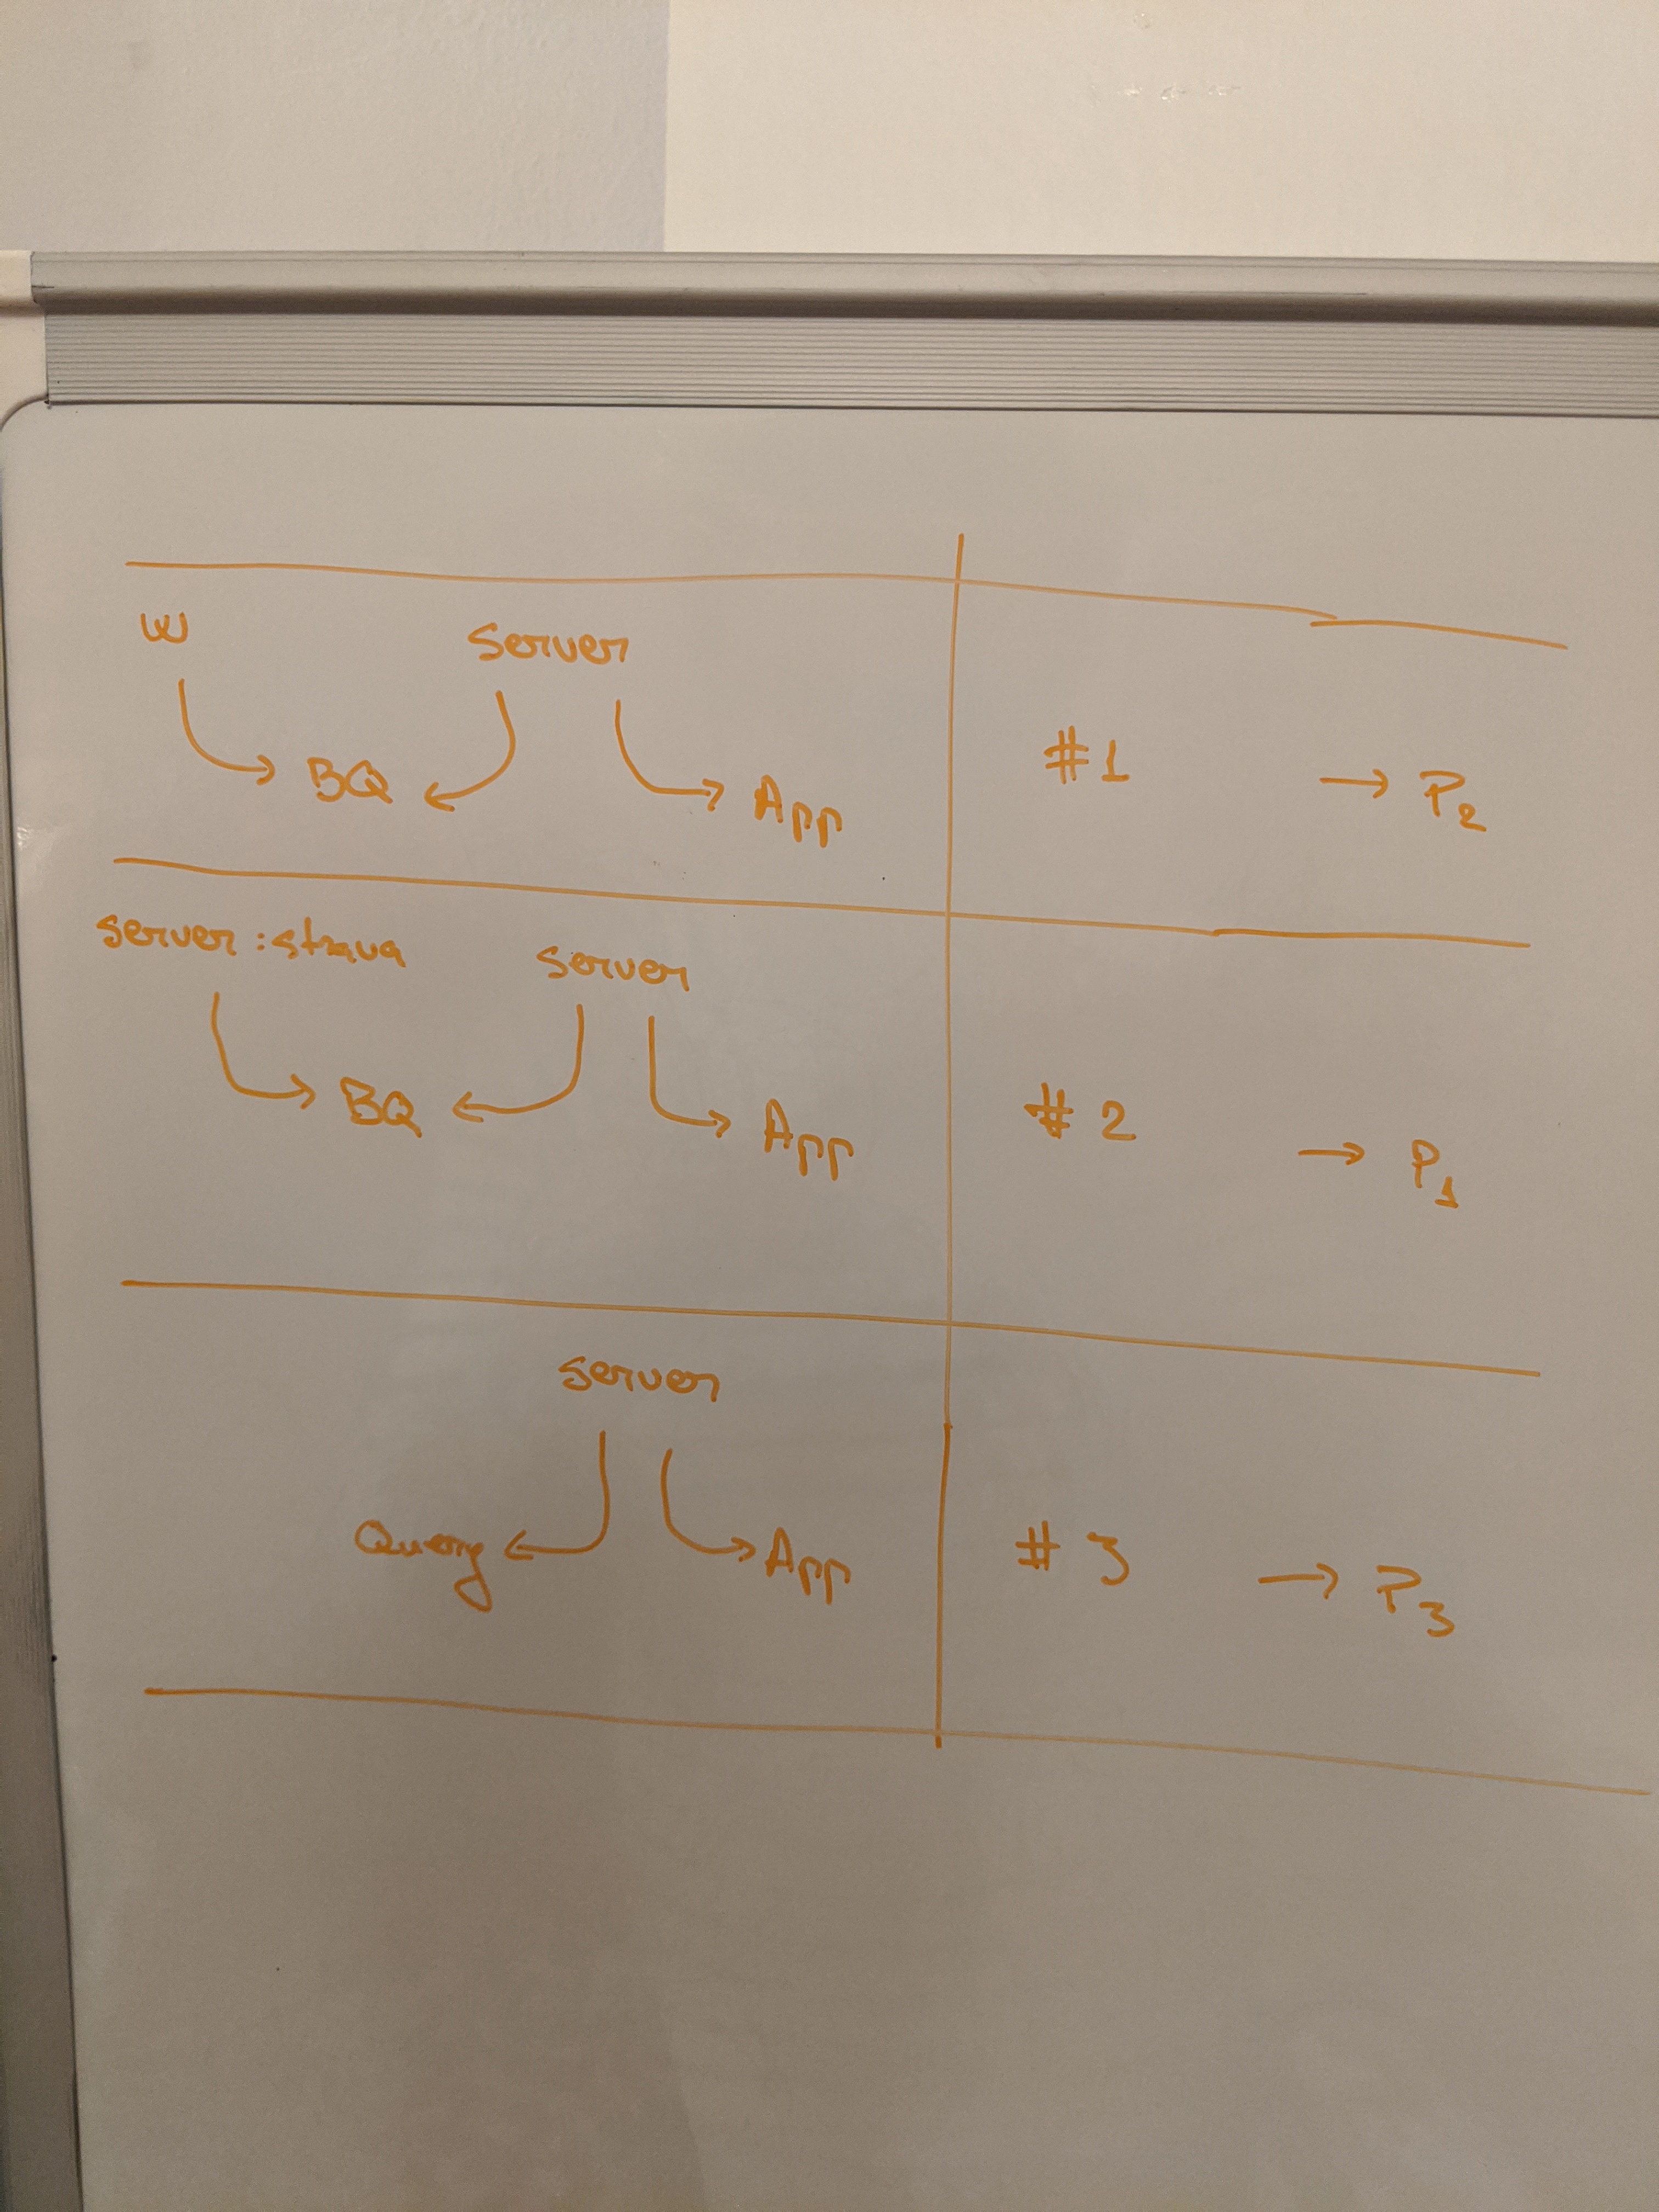 W server
BQ App #1 → P2
server:strava server
BQ App #2 → P1
server
Query App #3 → P3